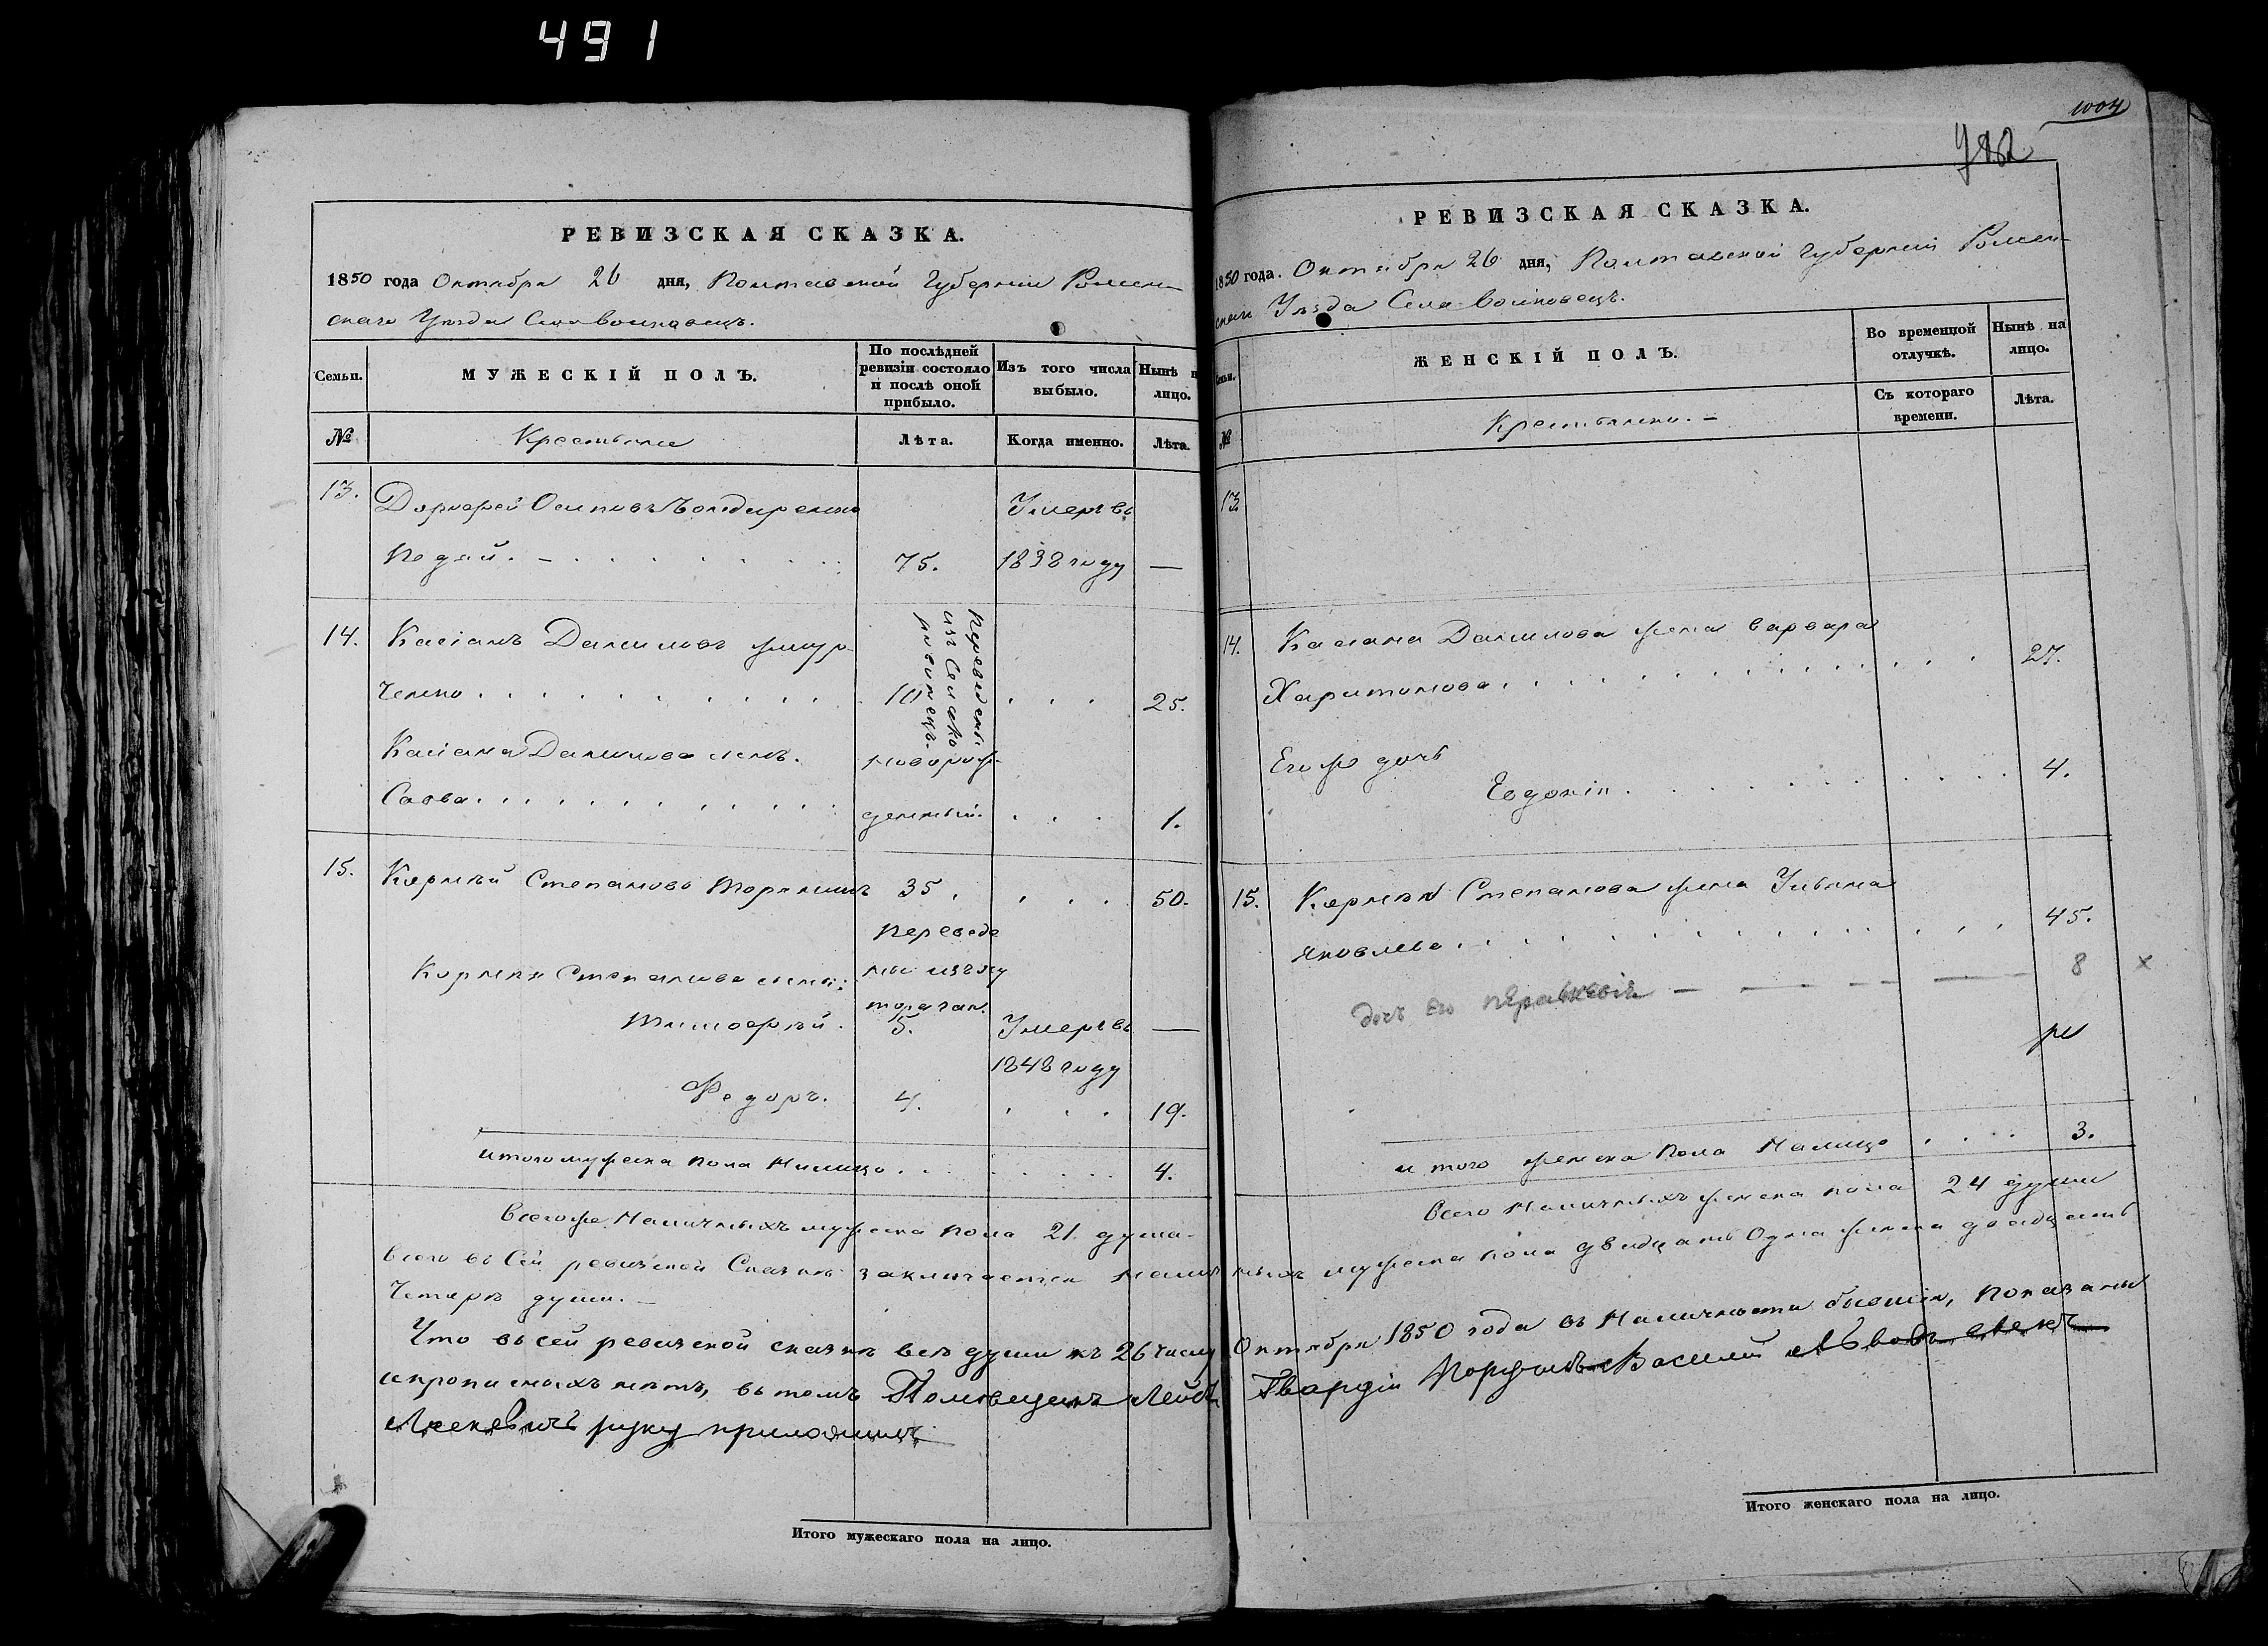 491
РЕВИЗСКАЯ СКАЗКА.
1850 года Октября 26 дня, Полтавской Губерніи Ромен-
скаго Уѣзда Села Воиновецъ.
Семьи.
МУЖЕСКІЙ ПОЛЪ.
По послѣдней ревизіи состояло и послѣ оной прибыло.
Изъ того числа выбыло.
Нынѣ н лицо.
№
Крестьяне
Лѣта.
Когда именно.
Лѣта.
13. Осиповъ Умеръ въ
75. 1838 году —
14. Касіанъ Даниловъ
ченко 10 25.
Переведены
изъ Села
Касіана Данилова сынъ новорож-
Савва денный. 1.
15. Корнѣй Степановъ 35. 50.
Переведе
Корнѣя Степанова сыны: ны изъ
Тимофѣй. 5. Умеръ въ —
1848 году
Федоръ. 4. 19.
итого мужеска пола Налицо 4.
Всего же Наличныхъ мужеска пола 21 душа.
Всего въ Сей ревизской Сказке заключается Налич
Четыре души. —
Что въ сей ревизской сказкѣ всѣ души къ 26 числу
и прописныхъ нетъ, въ томъ Помѣщикъ Лейбъ
руку приложилъ
Итого мужескаго пола на лицо.
1004
РЕВИЗСКАЯ СКАЗКА.
1850 года. Октября 26 дня, Полтавской Губерніи Ромен-
скаго Уѣзда Села Воиновецъ.
ЖЕНСКІЙ ПОЛЪ.
Во временной отлучкѣ.
Нынѣ на лицо.
№
Крестьянки. —
Съ котораго времени.
Лѣта.
13
14. Касіана Данилова жена Варвара
Харитонова 27.
Его же дочь
Евдокія 4.
15. Корнѣя Степанова жена Ульяна
Яковлева 45.
дочь его 8 x
и того женска Пола Налицо 3.
Всего Наличныхъ женска пола 24 души
ныхъ мужеска пола двадцать Одна женска двадцать
Октября 1850 года въ Наличности бывшія, показаны
Гвардіи Василий
Итого женскаго пола на лицо.